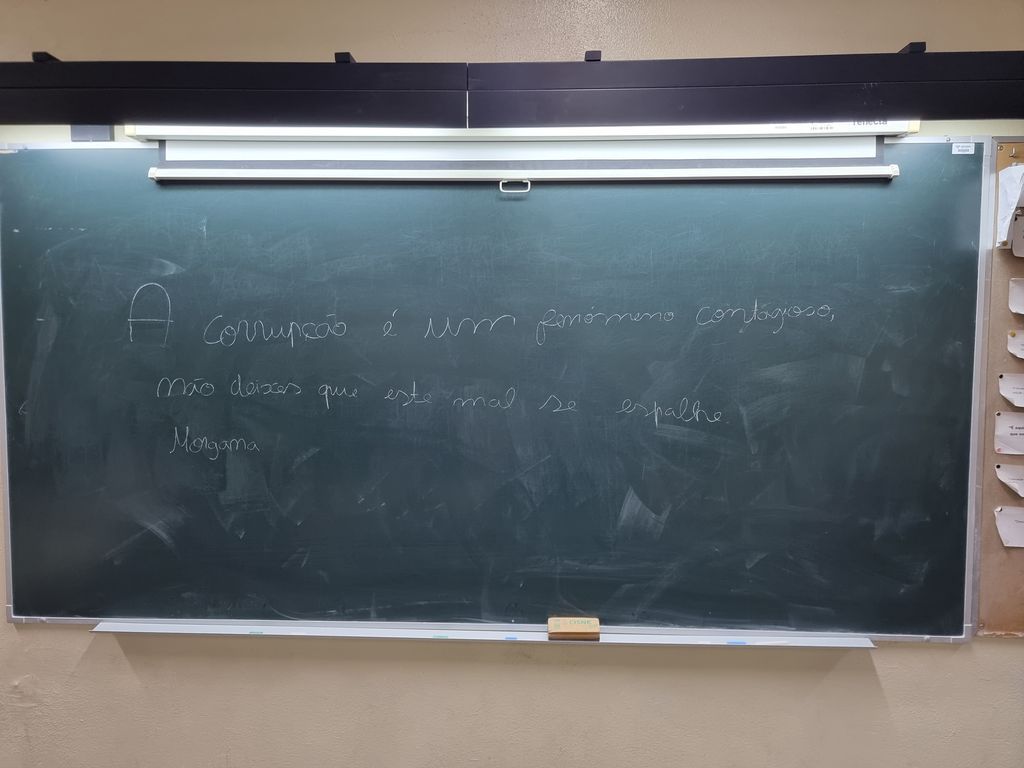 A corrupção é um fenómeno contagioso,
não deixes que este mal se espalhe.
Morgana
reflecta
CISNE